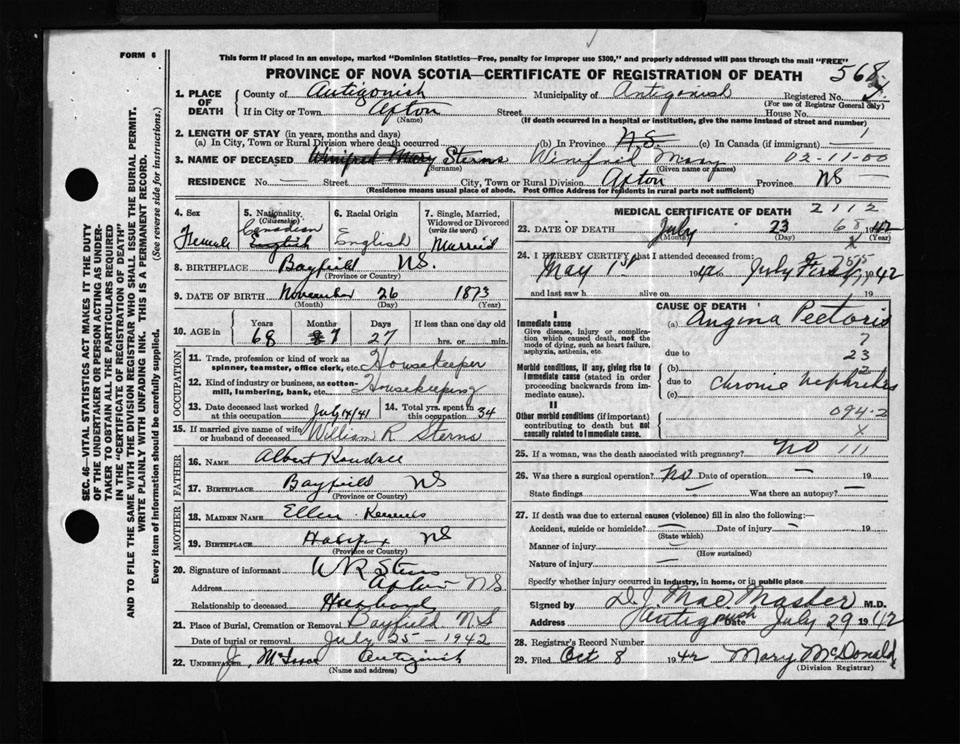 FORM 6
This form if placed in an envelope, marked "Dominion Statistics—Free, penalty for improper use $300," and properly addressed will pass through the mail "FREE"
PROVINCE OF NOVA SCOTIA—CERTIFICATE OF REGISTRATION OF DEATH 568
1. PLACE OF DEATH County of Antigonish Municipality of Antigonish Registered No.
(For use of Registrar General only)
If in City or Town Afton Street House No.
(Name) (If death occurred in a hospital or institution, give the name instead of street and number)
2. LENGTH OF STAY (in years, months and days)
(a) In City, Town or Rural Division where death occurred (b) In Province N.S. (c) In Canada (if immigrant) —
3. NAME OF DECEASED Winifred Mary Sterns Winifred Mary 02-11-00
(Surname) (Given name or names)
RESIDENCE No. — Street — City, Town or Rural Division Afton Province NS —
(Residence means usual place of abode. Post Office Address for residents in rural parts not sufficient)
4. Sex Female
5. Nationality (Citizenship) Canadian English
6. Racial Origin English
7. Single, Married, Widowed or Divorced (write the word) Married
8. BIRTHPLACE Bayfield NS.
(Province or Country)
9. DATE OF BIRTH November 26 1873
(Month) (Day) (Year)
10. AGE in Years Months Days If less than one day old
68 7 27 hrs. or min.
OCCUPATION
11. Trade, profession or kind of work as spinner, teamster, office clerk, etc. Housekeeper
12. Kind of industry or business, as cotton-mill, lumbering, bank, etc. Housekeeping
13. Date deceased last worked at this occupation July 14/41
14. Total yrs. spent in this occupation 34
15. If married give name of wife or husband of deceased William R Sterns
FATHER
16. NAME Albert Randall
17. BIRTHPLACE Bayfield NS
(Province or Country)
MOTHER
18. MAIDEN NAME Ellen
19. BIRTHPLACE Halifax NS
(Province or Country)
20. Signature of informant W R Sterns
Address Afton NS.
Relationship to deceased Husband
21. Place of Burial, Cremation or Removal Bayfield NS
Date of burial or removal July 25 – 1942
22. UNDERTAKER J. McIsaac Antigonish
(Name and address)
MEDICAL CERTIFICATE OF DEATH 2112
23. DATE OF DEATH July 23 1942
(Month) (Day) (Year)
24. I HEREBY CERTIFY that I attended deceased from:
May 1st 1942 July First 1942
and last saw h alive on 19
CAUSE OF DEATH
I
Immediate cause
Give disease, injury or complication which caused death, not the mode of dying, such as heart failure, asphyxia, asthenia, etc.
(a) Angina Pectoris
due to 23
Morbid conditions, if any, giving rise to immediate cause (stated in order proceeding backwards from immediate cause).
(b)
due to Chronic Nephritis
(c)
II
Other morbid conditions (if important) contributing to death but not causally related to immediate cause. 094-2
x
25. If a woman, was the death associated with pregnancy? No 111
26. Was there a surgical operation? No Date of operation — 19
State findings — Was there an autopsy? —
27. If death was due to external causes (violence) fill in also the following:—
Accident, suicide or homicide? — Date of injury — 19
(State which)
Manner of injury —
(How sustained)
Nature of injury —
Specify whether injury occurred in industry, in home, or in public place
Signed by D. J. MacMaster M.D.
Address Antigonish Date July 29 1942
28. Registrar's Record Number
29. Filed Oct 8 1942 Mary McDonald
(Division Registrar)
SEC. 46—VITAL STATISTICS ACT MAKES IT THE DUTY
OF THE UNDERTAKER OR PERSON ACTING AS UNDERTAKER TO OBTAIN ALL THE PARTICULARS REQUIRED
IN THE "CERTIFICATE OF REGISTRATION OF DEATH"
AND TO FILE THE SAME WITH THE DIVISION REGISTRAR WHO SHALL ISSUE THE BURIAL PERMIT.
WRITE PLAINLY WITH UNFADING INK. THIS IS A PERMANENT RECORD.
Every item of information should be carefully supplied. (See reverse side for instructions.)